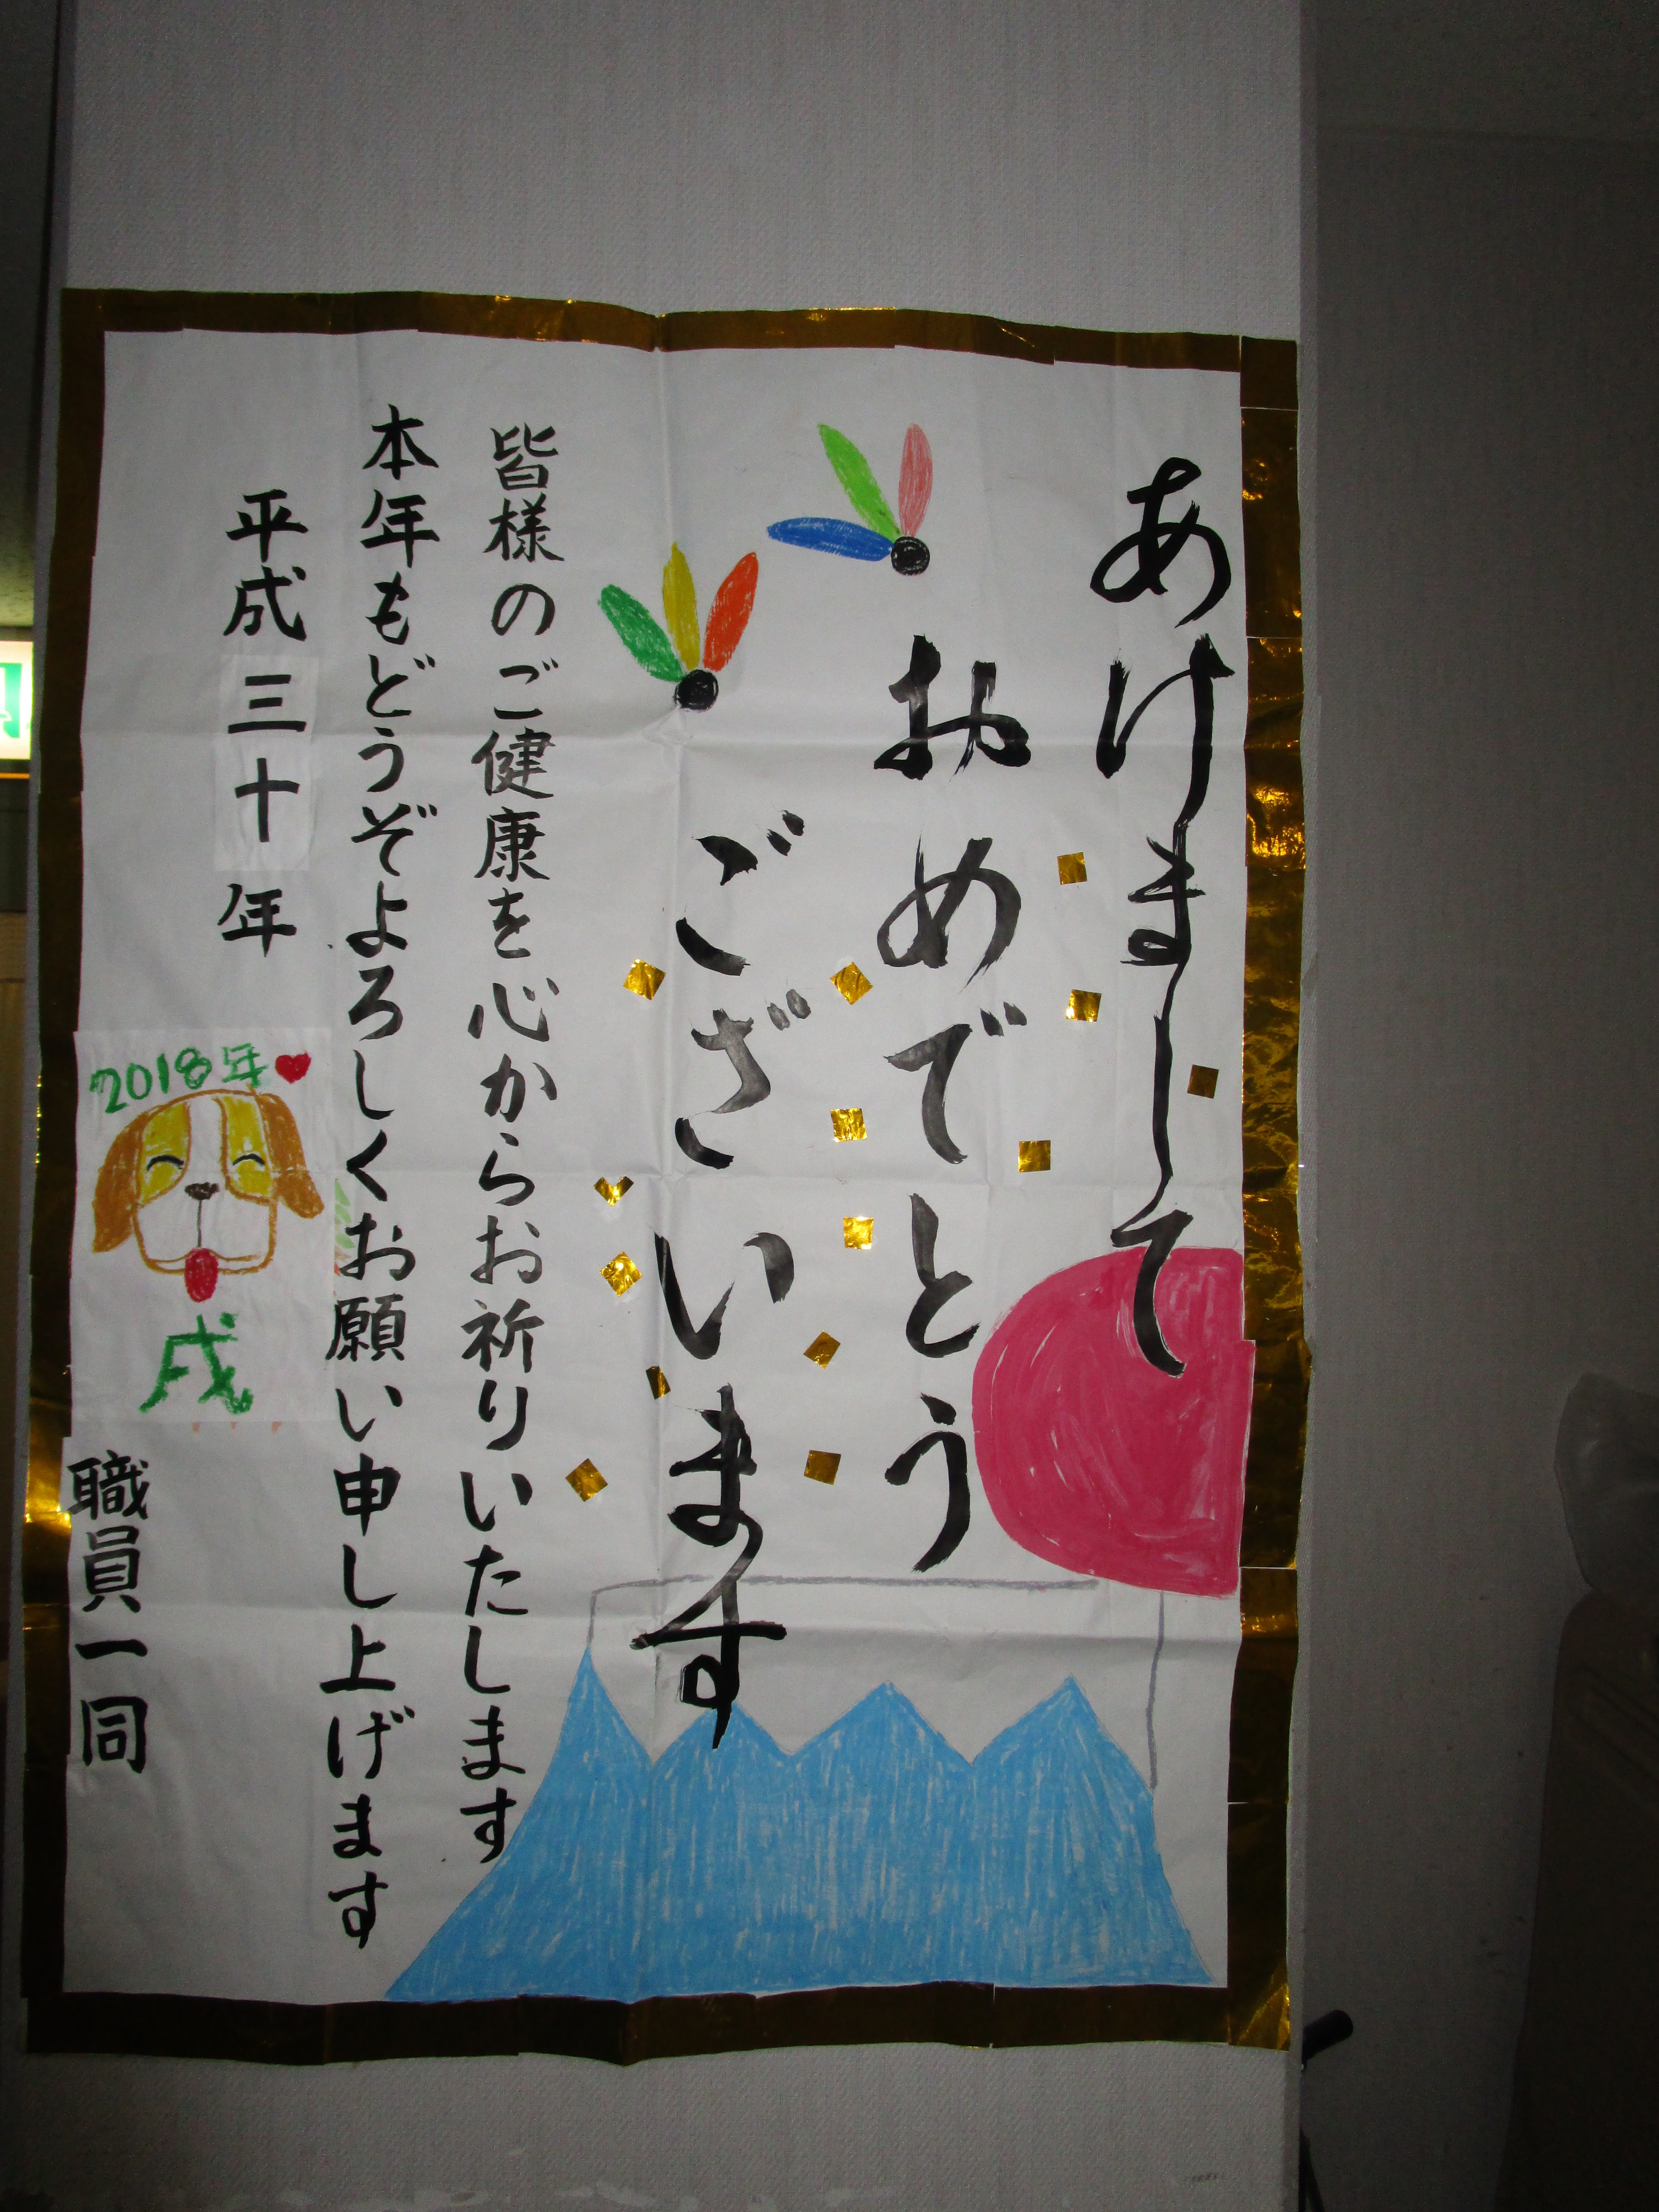 あけまして
おめでとう
ございます
皆様のご健康を心からお祈りいたします
本年もどうぞよろしくお願い申し上げます
平成三十年
2018年
戌
職員一同